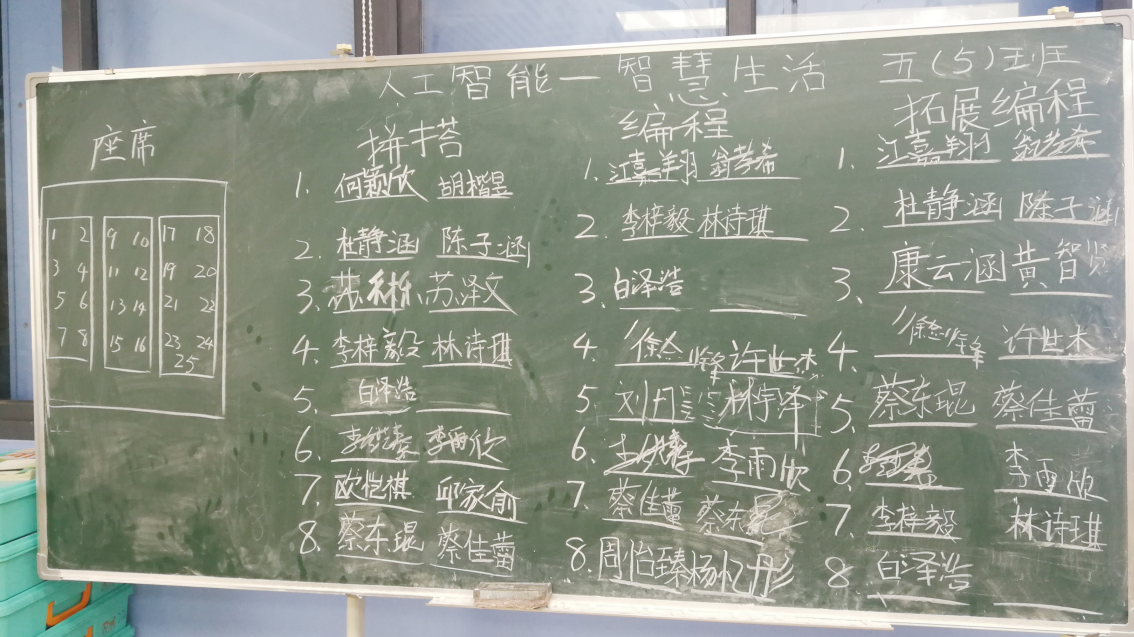 人工智能—智慧生活 五(5)班
座席
1 2 9 10 17 18
3 4 11 12 19 20
5 6 13 14 21 22
7 8 15 16 23 24
25
拼搭
1. 何颖欣 胡楷昰
2. 杜静涵 陈子涵
3. 苏泽文
4. 李梓毅 林诗琪
5. 白泽浩
6. 李雨欣
7. 欧恺祺 邱家俞
8. 蔡东琨 蔡佳蕾
编程
1. 江嘉翔 翁梦希
2 李梓毅 林诗琪
3. 白泽浩
4. 许世杰
5. 刘丹 林宇泽
6. 李雨欣
7. 蔡佳蕾 蔡东琨
8. 周怡臻 杨忆彤
拓展编程
1. 江嘉翔
2. 杜静涵 陈子涵
3. 康云涵 黄智贤
4. 许世杰
5. 蔡东琨 蔡佳蕾
6. 李雨欣
7. 李梓毅 林诗琪
8 白泽浩